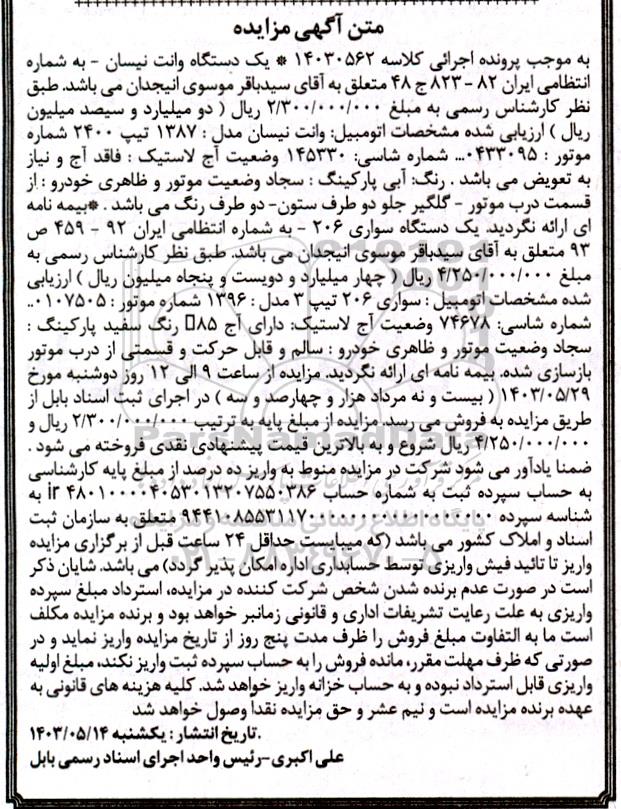 متن آگهی مزایده
به موجب پرونده اجرائی کلاسه ۱۴۰۳۰۵۶۲ * یک دستگاه وانت نیسان - به شماره
انتظامی ایران ۸۲ - ۸۲۳ ج ۴۸ متعلق به آقای سیدباقر موسوی انیجدان می باشد. طبق
نظر کارشناس رسمی به مبلغ ۲/۳۰۰/۰۰۰/۰۰۰ ریال ( دو میلیارد و سیصد میلیون
ریال ) ارزیابی شده مشخصات اتومبیل: وانت نیسان مدل : ۱۳۸۷ تیپ ۲۴۰۰ شماره
موتور : ۰۴۳۳۰۹۵... شماره شاسی: ۱۴۵۳۳۰ وضعیت آج لاستیک : فاقد آج و نیاز
به تعویض می باشد . رنگ: آبی پارکینگ : سجاد وضعیت موتور و ظاهری خودرو : از
قسمت درب موتور - گلگیر جلو دو طرف ستون- دو طرف رنگ می باشد . *بیمه نامه
ای ارائه نگردید. یک دستگاه سواری ۲۰۶ - به شماره انتظامی ایران ۹۲ - ۴۵۹ ص
۹۳ متعلق به آقای سیدباقر موسوی انیجدان می باشد. طبق نظر کارشناس رسمی به
مبلغ ۴/۲۵۰/۰۰۰/۰۰۰ ریال ( چهار میلیارد و دویست و پنجاه میلیون ریال ) ارزیابی
شده مشخصات اتومبیل : سواری ۲۰۶ تیپ ۳ مدل : ۱۳۹۶ شماره موتور : ۰۱۰۷۵۰۵..
شماره شاسی: ۷۴۶۷۸ وضعیت آج لاستیک: دارای آج ۸۵ رنگ سفید پارکینگ :
سجاد وضعیت موتور و ظاهری خودرو : سالم و قابل حرکت و قسمتی از درب موتور
بازسازی شده. بیمه نامه ای ارائه نگردید. مزایده از ساعت ۹ الی ۱۲ روز دوشنبه مورخ
۱۴۰۳/۰۵/۲۹ ( بیست و نه مرداد هزار و چهارصد و سه ) در اجرای ثبت اسناد بابل از
طریق مزایده به فروش می رسد. مزایده از مبلغ پایه به ترتیب ۲/۳۰۰/۰۰۰/۰۰۰ ریال و
۴/۲۵۰/۰۰۰/۰۰۰ ریال شروع و به بالاترین قیمت پیشنهادی نقدی فروخته می شود .
ضمنا یادآور می شود شرکت در مزایده منوط به واریز ده درصد از مبلغ پایه کارشناسی
به حساب سپرده ثبت به شماره حساب ir ۴۸۰۱۰۰۰۰۴۰۵۳۰۱۳۲۰۷۵۵۰۳۸۶ به
شناسه سپرده متعلق به سازمان ثبت
اسناد و املاک کشور می باشد (که میبایست حداقل ۲۴ ساعت قبل از برگزاری مزایده
واریز تا تائید فیش واریزی توسط حسابداری اداره امکان پذیر گردد) می باشد. شایان ذکر
است در صورت عدم برنده شدن شخص شرکت کننده در مزایده، استرداد مبلغ سپرده
واریزی به علت رعایت تشریفات اداری و قانونی زمانبر خواهد بود و برنده مزایده مکلف
است ما به التفاوت مبلغ فروش را ظرف مدت پنج روز از تاریخ مزایده واریز نماید و در
صورتی که ظرف مهلت مقرر، مانده فروش را به حساب سپرده ثبت واریز نکند، مبلغ اولیه
واریزی قابل استرداد نبوده و به حساب خزانه واریز خواهد شد. کلیه هزینه های قانونی به
عهده برنده مزایده است و نیم عشر و حق مزایده نقدا وصول خواهد شد
.تاریخ انتشار : یکشنبه ۱۴۰۳/۰۵/۱۴
علی اکبری-رئیس واحد اجرای اسناد رسمی بابل